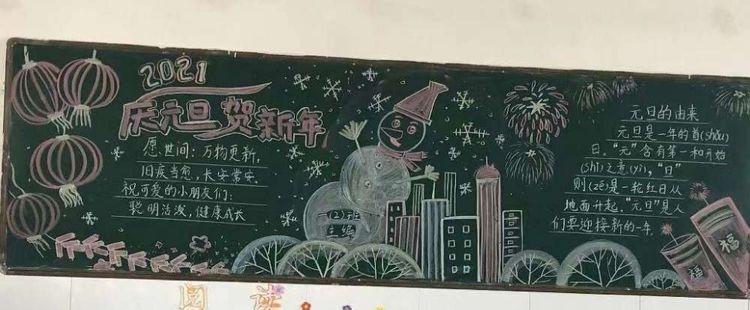 2021
庆元旦 贺新年
愿世间：万物更新，
旧疾当愈，长安常安。
祝可爱的小朋友们：
聪明活泼，健康成长
一(2)班
主编
元日的由来
元旦是一年的首(shǒu)
日。"元"含有第一和开始
(shǐ)之意(yì)，"日"
则(zé)是一轮红日从
地面升起。"元日"是人
们要迎接新的一年。
福
福
阅读